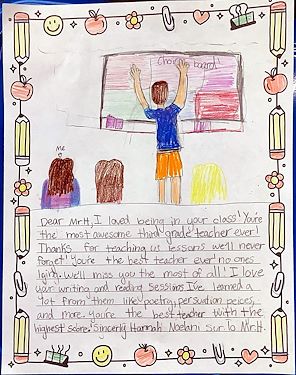 Choice board
Me
Dear Mr.H, I loved being in your class! You're
the most awesome third grade teacher ever!
Thanks for teaching us lessons we'll never
forget! You're the best teacher ever no ones
lying. We'll miss you the most of all! I love
your writing and reading sessions I've learned a
lot from them like poetry, persuation peices,
and more. You're the best teacher with the
highest score! Sincerly Hannah Noelani